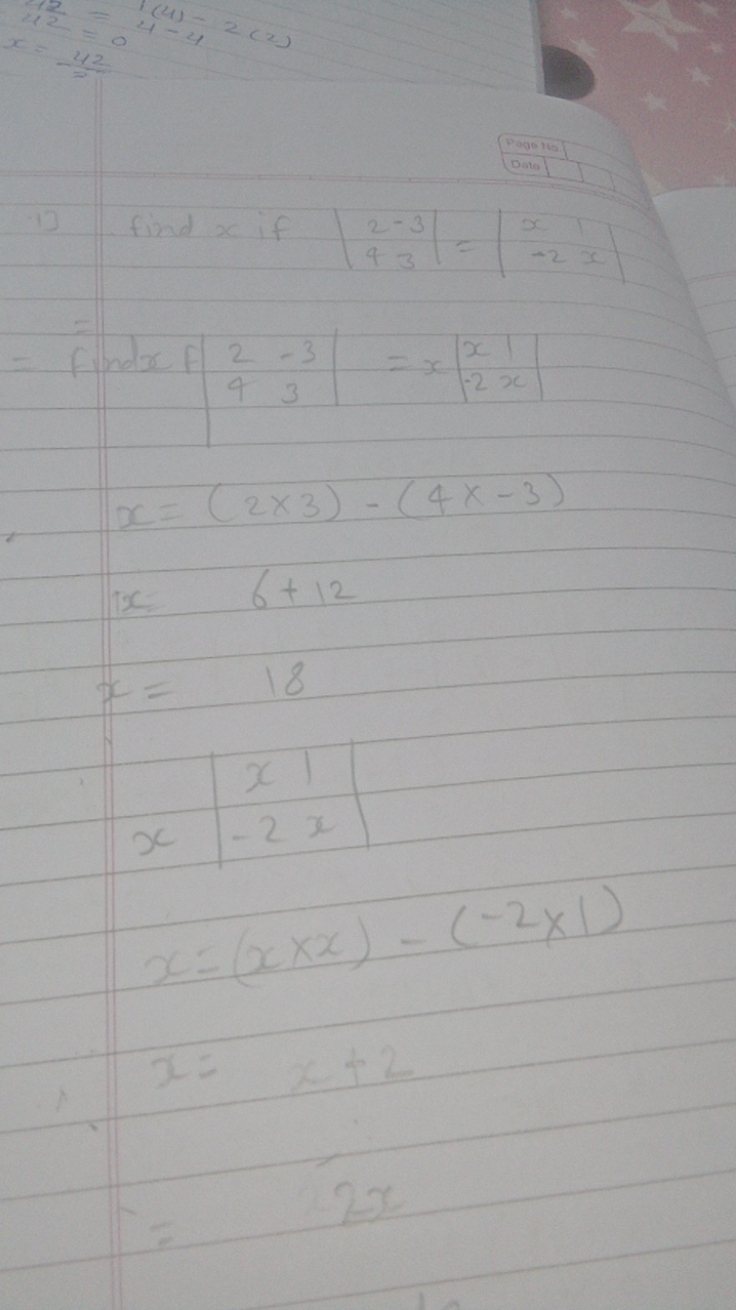 42 = 1(4) - 2(2)
42 = 0 4-4
x = 42
Page No.
Date
1) find x if | 2 -3 | = | x 1 |
4 3 -2 x
=
= find x f | 2 -3 | = x | x 1 |
4 3 -2 x
x = (2×3) - (4×-3)
x= 6+12
x = 18
x 1
x -2 x
x = (x×x) - (-2×1)
x = x+2
= 2x